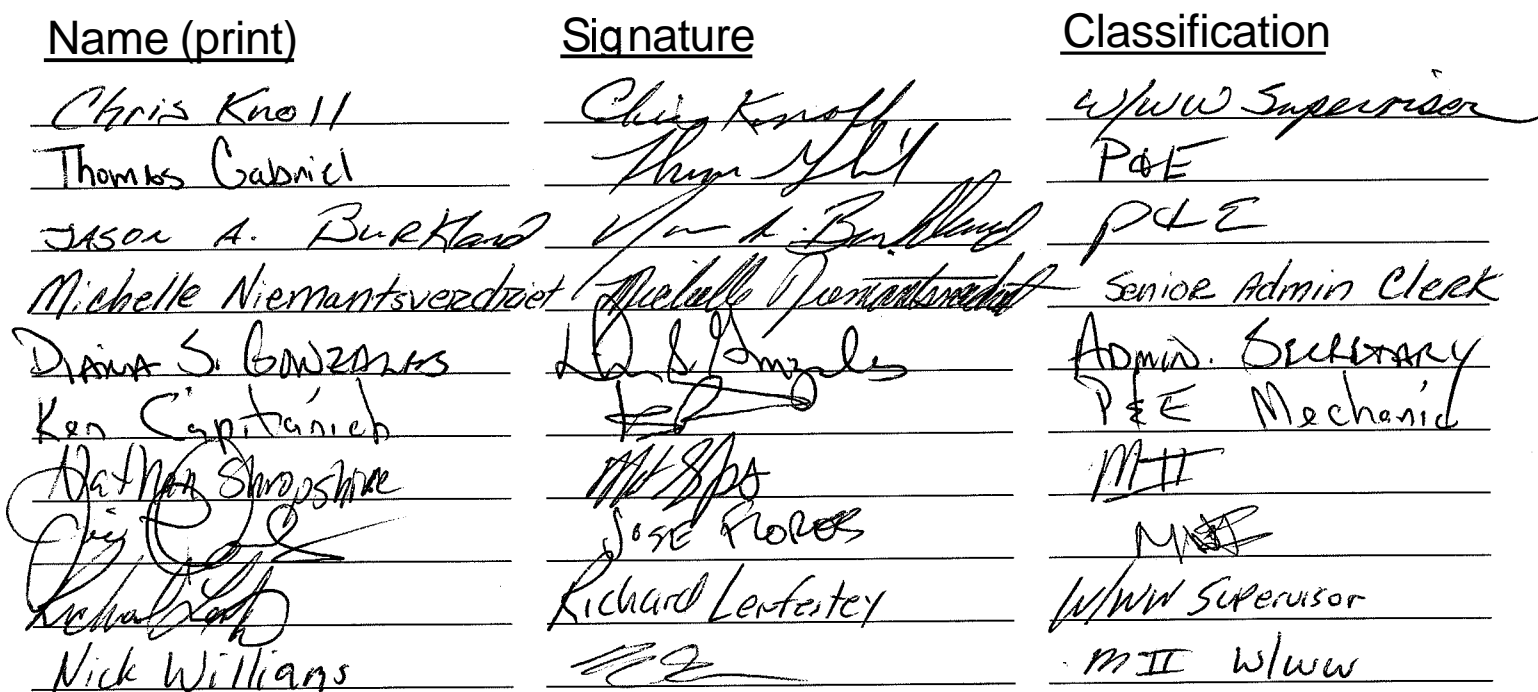 Name (print) Signature Classification
Chris Knoll Chris Knoll W/WW Supervisor
Thomas Gabriel P&E
JASON A. BURKland A. Burkland P&E
Michelle Niemantsverdriet Michelle Niemantsverdriet Senior Admin Clerk
DIANA S. GONZALES S. Gonzales ADMIN. SECRETARY
Ken Capitanich P&E Mechanic
Nathan Shropshire MII
JOSE FLORES
Richard Lenfestey W/WW Supervisor
Nick Williams MII W/WW